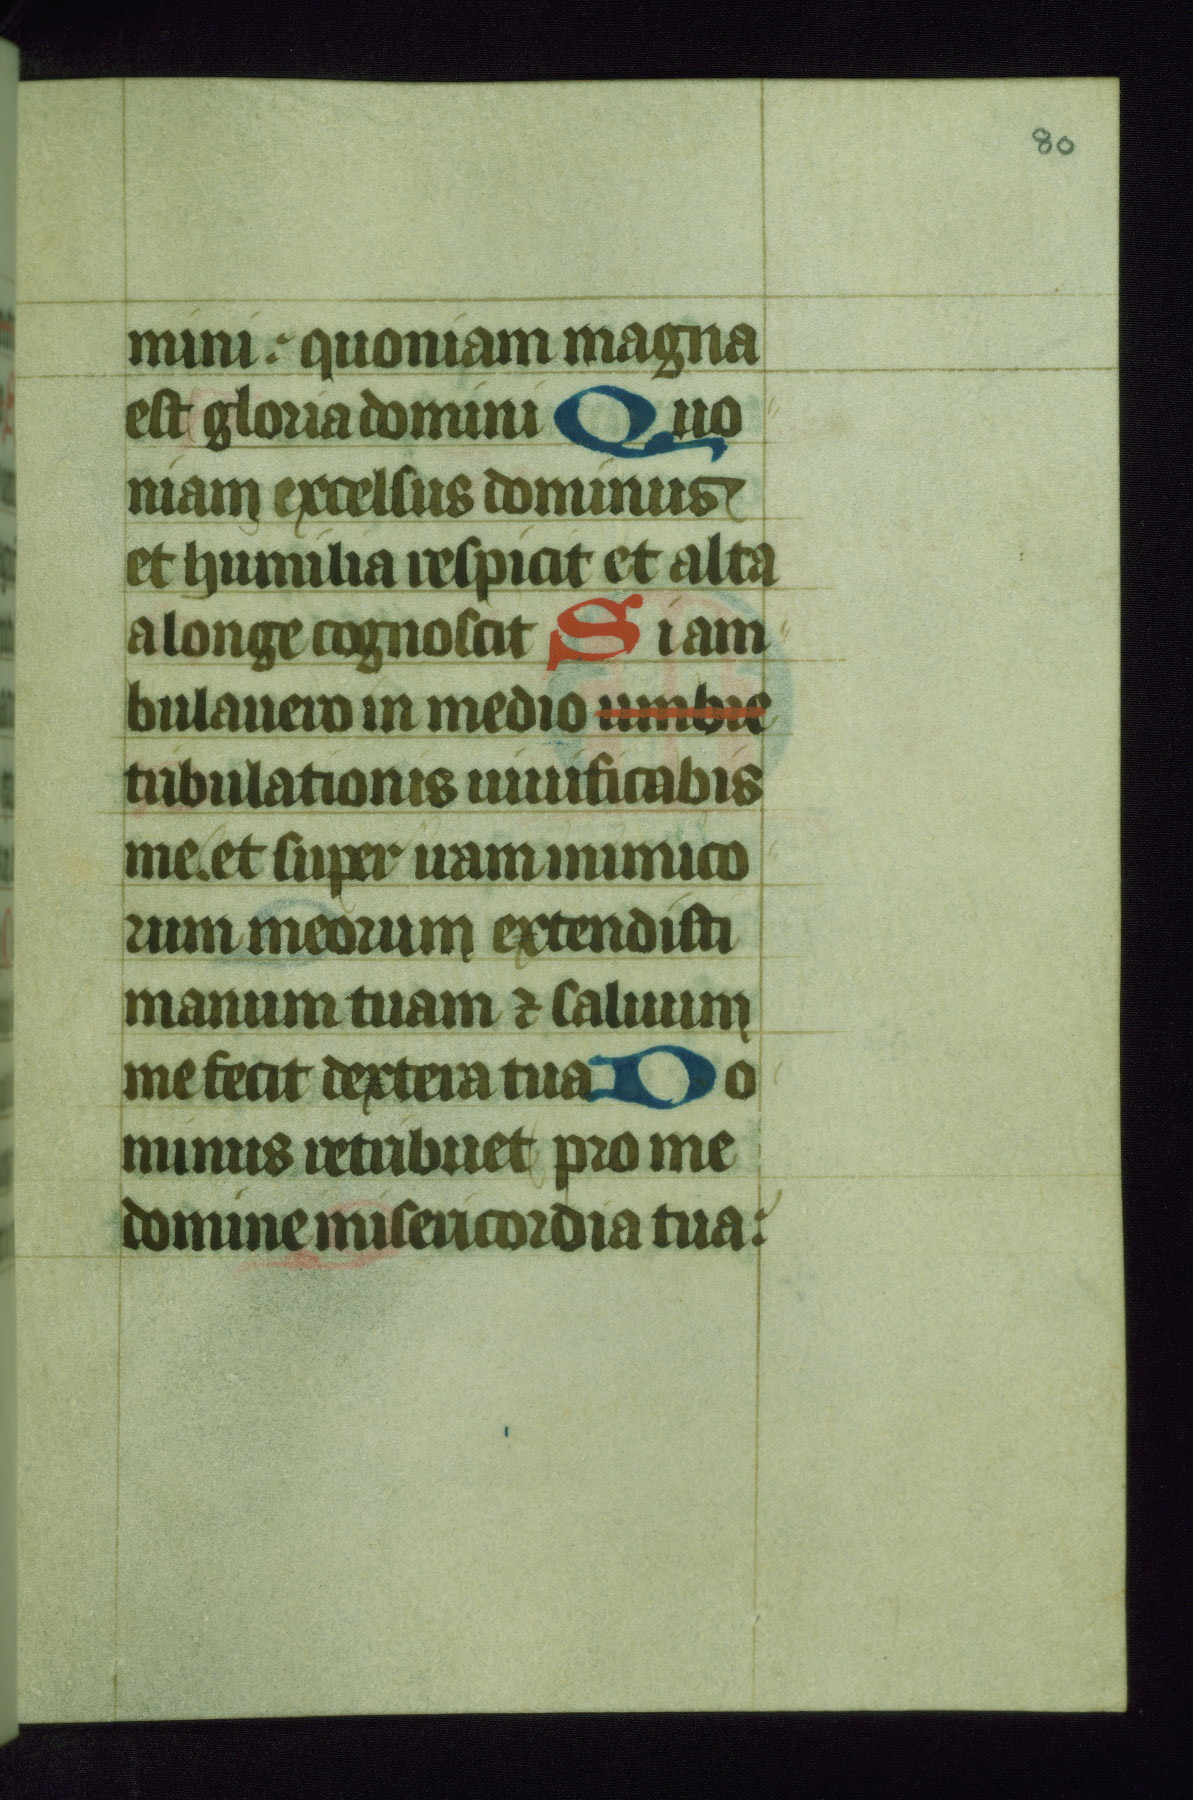 80
mini : quoniam magna
est gloria domini Quo
niam excelsus dominus
et humilia respicit et alta
a longe cognoscit Si am
bulauero in medio umbre
tribulationis uiuificabis
me. et super iram inimico
rum meorum extendisti
manum tuam ⁊ saluum
me fecit dextera tua Do
minus retribuet pro me
domine misericordia tua :